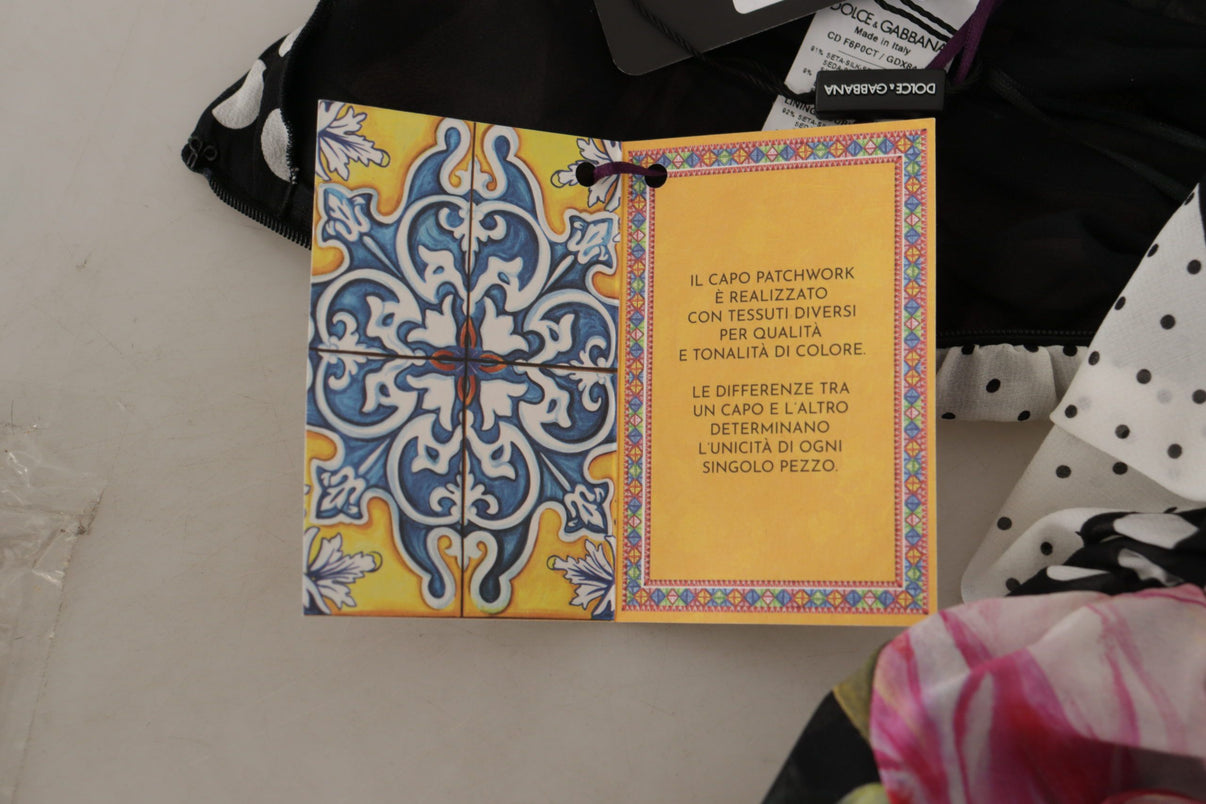 DOLCE & GABBANA
Made in Italy
CD F6P0CT /
91% SETA-SILK-
DOLCE & GABBANA
LINING
92% SETA-
IL CAPO PATCHWORK
È REALIZZATO
CON TESSUTI DIVERSI
PER QUALITÀ
E TONALITÀ DI COLORE.
LE DIFFERENZE TRA
UN CAPO E L'ALTRO
DETERMINANO
L'UNICITÀ DI OGNI
SINGOLO PEZZO.